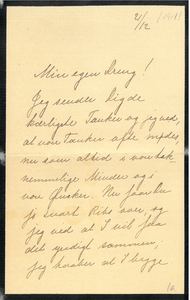 21/12 1911
Min egen Dreng!
Jeg sender Dig de
kærligste Tanker og jeg ved,
at vore Tanker ofte mødes,
nu som altid i vore tak-
nemmelige Minder og i
vore Ønsker. Nu faar Du
jo snart Ribs over, og
jeg ved at I vil faa
det yndigt sammen,
jeg ønsker at I begge
1a